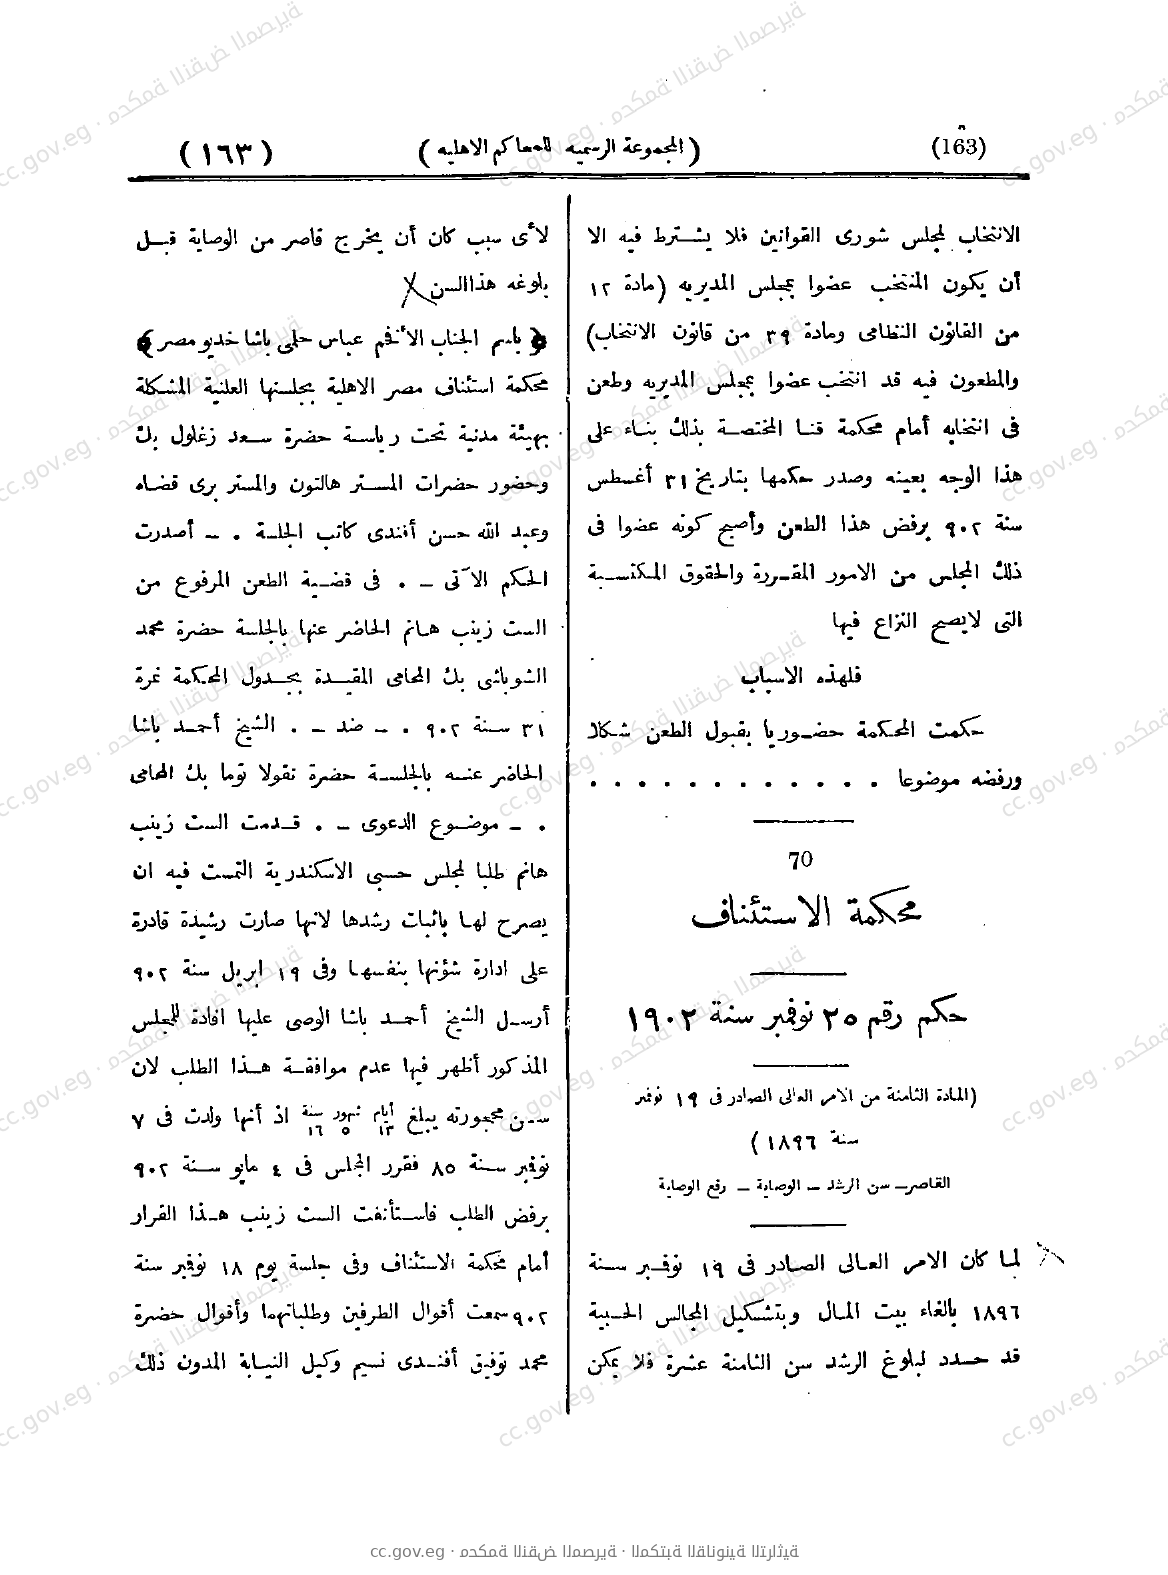 (163)
(المجموعة الرسمية للمحاكم الاهلية)
(١٦٣)
الانتخاب لمجلس شورى القوانين فلا يشترط فيه الا
أن يكون المنتخب عضوا بمجلس المديريه (مادة ١٢
من القانون النظامى ومادة ٣٩ من قانون الانتخاب)
والمطعون فيه قد انتخب عضوا بمجلس المديريه وطعن
فى انتخابه أمام محكمة قنا المختصة بذلك بناء على
هذا الوجه بعينه وصدر حكمها بتاريخ ٣١ أغسطس
سنة ٩٠٢ برفض هذا الطعن وأصبح كونه عضوا فى
ذلك المجلس من الامور المقررة والحقوق المكتسبة
التى لايصح النزاع فيها
فلهذه الاسباب
حكمت المحكمة حضوريا بقبول الطعن شكلا
ورفضه موضوعا . . . . . . . . . . . .
70
محكمة الاستئناف
حكم رقم ٢٥ نوفمبر سنة ١٩٠٢
(المادة الثامنة من الامر العالى الصادر فى ١٩ نوفمبر
سنة ١٨٩٦)
القاصر ــ سن الرشد ــ الوصاية ــ رفع الوصاية
لما كان الامر العالى الصادر فى ١٩ نوفمبر سنة
١٨٩٦ بالغاء بيت المال وبتشكيل المجالس الحسبية
قد حدد لبلوغ الرشد سن الثامنة عشرة فلا يمكن
لأى سبب كان أن يخرج قاصر من الوصاية قبل
بلوغه هذا السن
﴿ باسم الجناب الأفخم عباس حلمى باشا خديو مصر ﴾
محكمة استئناف مصر الاهلية بجلستها العلنية المشكلة
بهيئة مدنية تحت رياسة حضرة سعد زغلول بك
وحضور حضرات المستر هالتون والمستر برى قضاه
وعبد الله حسن أفندى كاتب الجلسة . ــ أصدرت
الحكم الآتى ــ . فى قضية الطعن المرفوع من
الست زينب هانم الحاضر عنها بالجلسة حضرة محمد
الشوباشى بك المحامى المقيدة بجدول المحكمة نمرة
٣١ سنة ٩٠٢ . ــ ضد ــ . الشيخ أحمد باشا
الحاضر عنه بالجلسة حضرة نقولا توما بك المحامى
. ــ موضوع الدعوى ــ . قدمت الست زينب
هانم طلبا لمجلس حسبى الاسكندرية التمست فيه ان
يصرح لها باثبات رشدها لانها صارت رشيدة قادرة
على ادارة شؤنها بنفسها وفى ١٩ ابريل سنة ٩٠٢
أرسل الشيخ أحمد باشا الوصى عليها افادة للمجلس
المذكور أظهر فيها عدم موافقة هذا الطلب لان
سن محجورته يبلغ أيام ١٣ شهور ٥ سنة ١٦ اذ أنها ولدت فى ٧
نوفمبر سنة ٨٥ فقرر المجلس فى ٤ مايو سنة ٩٠٢
برفض الطلب فاستأنفت الست زينب هذا القرار
أمام محكمة الاستئناف وفى جلسة يوم ١٨ نوفمبر سنة
٩٠٢ سمعت أقوال الطرفين وطلباتهما وأقوال حضرة
محمد توفيق أفندى نسيم وكيل النيابة المدون ذلك
cc.gov.eg · محكمة النقض المصرية · المكتبة القانونية التراثية